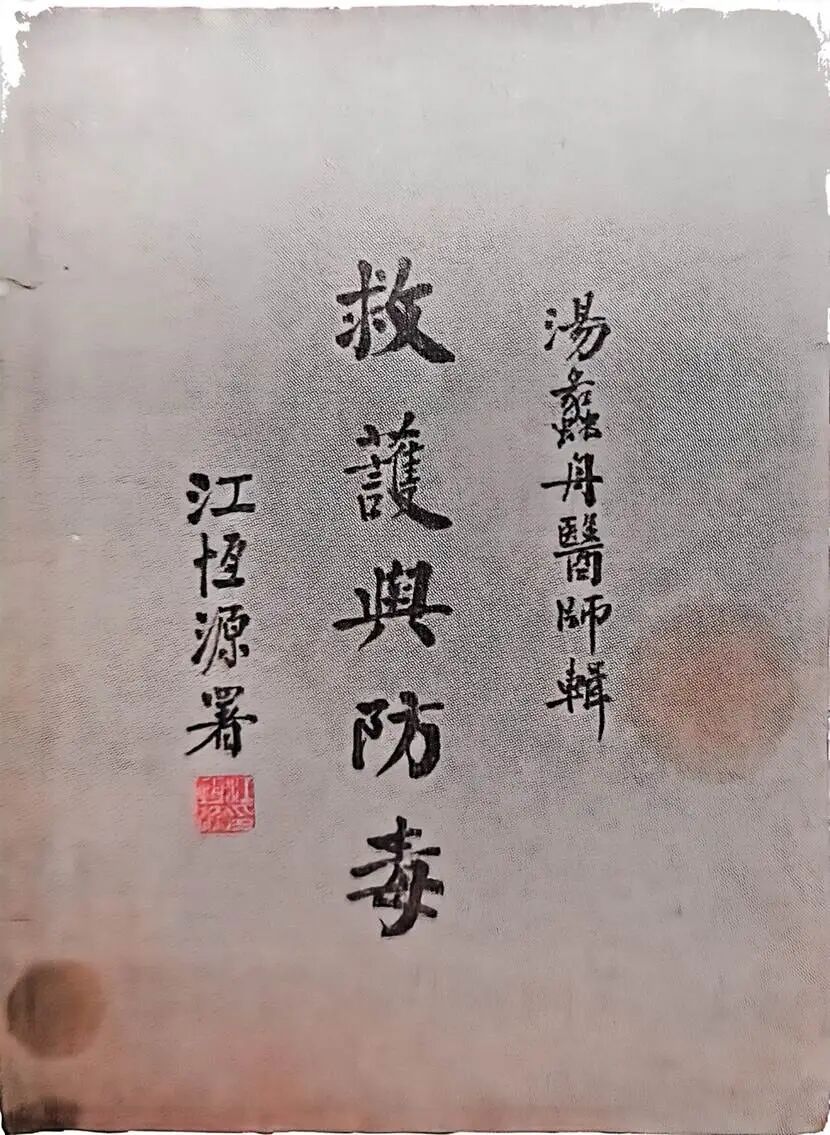 湯蠡舟醫師輯
救護與防毒
江恆源署